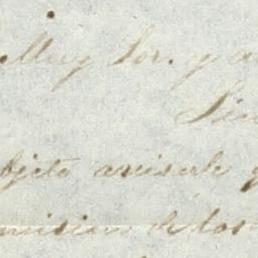 Muy Sor. y a
Sien
bjeto avisarle q
mision de los